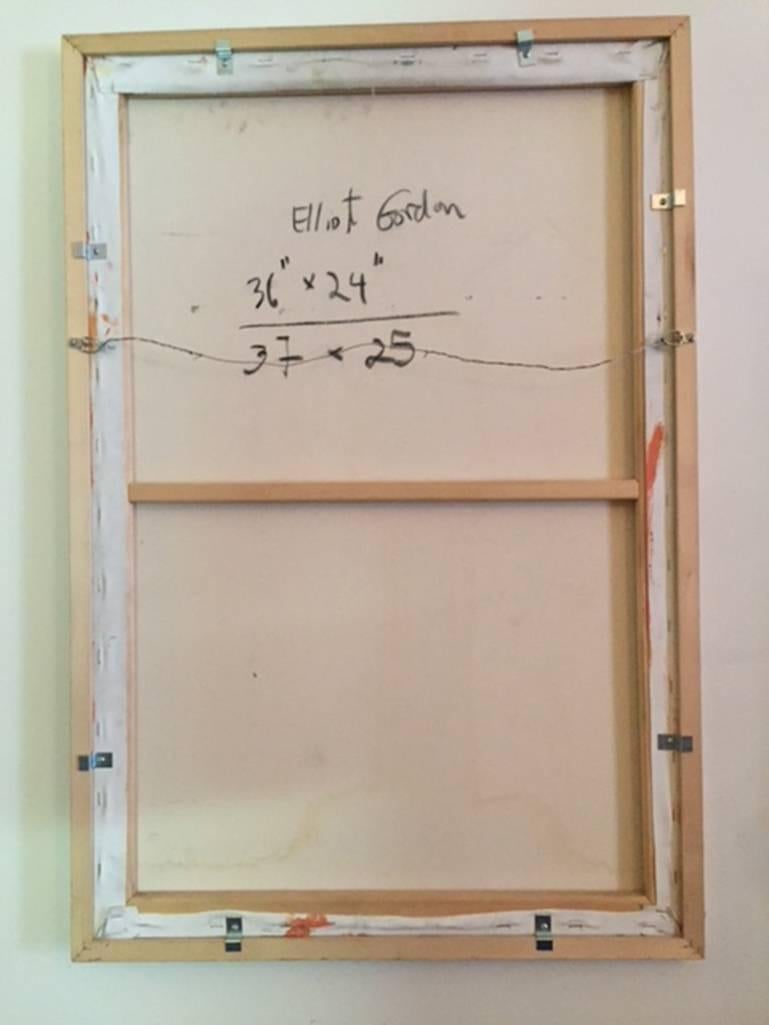 Elliot Gordon
36" x 24"
37 x 25